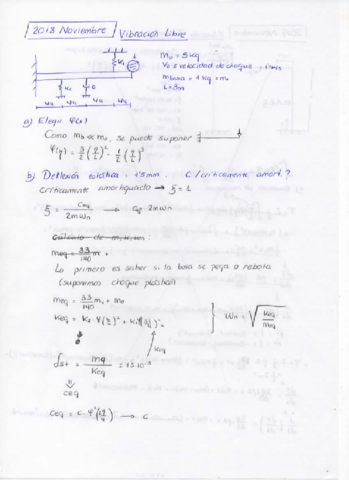 2013 Noviembre Vibración Libre
M0 = 5 kg
V0 ≡ velocidad de choque = 1 m/s
m barra = 1 kg = m0
L = 3m
K1
K1 C
L/4 L/4 L/4 L/4
a) Elegir Ψ(x)
Como mb ∝ m0, se puede suponer
Ψ(y) = 3/2 (y/L)² - 1/2 (y/L)³
b) Deflexión estática = 15mm. C/críticamente amort.?
críticamente amortiguado → ξ = 1
ξ = Ceq / 2mωn → Ceq 2mωn
cálculo de m, k, ωn:
meq = 33/140 m +
Lo primero es saber si la bola se pega o rebota
(suponemos choque plástico)
meq = 33/140 m + m0
Keq =
ωn = √(Keq/meq)
Keq
δst = mg/Keq = 15·10⁻³
ceq
ceq = C·Ψ² → C